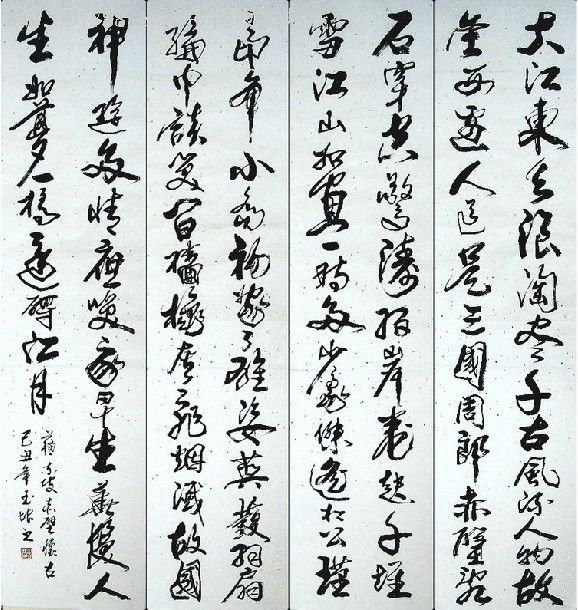 大江東去浪淘盡千古風流人物故
垒西邊人道是三國周郎赤壁亂
石穿空驚濤拍岸卷起千堆
雪江山如畫一時多少豪傑遙想公瑾
當年小喬初嫁了雄姿英發羽扇
綸巾談笑間檣櫓灰飛煙滅故國
神遊多情應笑我早生華髮人
生如夢一樽還酹江月
蘇東坡赤壁懷古
己丑年